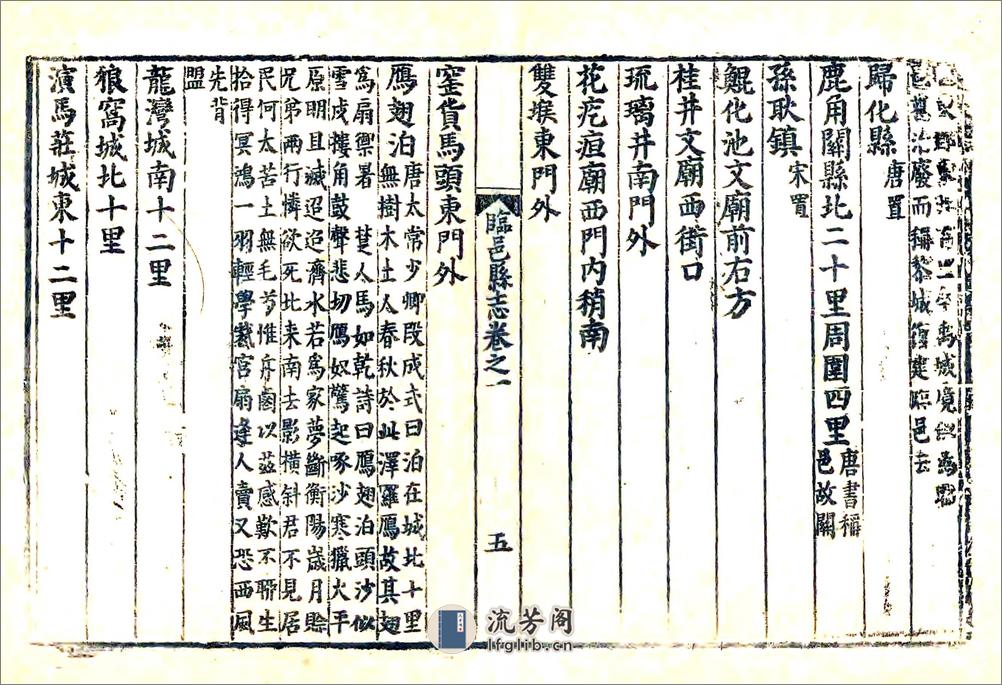 禹城境
舊治廢而稱黎城復建臨邑去
歸化縣 唐置
鹿角關縣北二十里周圍四里 唐書稱邑故關
孫耿鎮 宋置
鯤化池文廟前右方
桂井文廟西街口
琉璃井南門外
花疙疸廟西門內稍南
雙堠東門外
臨邑縣志卷之一 五
窰貨馬頭東門外
鴈翅泊 唐太常少卿段成式曰泊在城北十里
無樹木土人春秋於此澤羅鴈故其翅
爲扇禦暑 人馬如乾詩曰鴈翅泊頭沙似
雪戍樓角鼓聲悲切鴈奴驚起啄沙寒獵火平
原明且滅迢迢濟水若爲家夢斷衡陽歲月賒
兄弟兩行憐欲死北來南去影橫斜君不見居
民何太苦土無毛兮惟斥鹵以茲感歎不聊生
拾得冥鴻一羽輕學裁宮扇逢人賣又恐西風
先背
盟
龍灣城南十二里
狼窩城北十里
演馬莊城東十二里
流芳阁
lfglib.cn